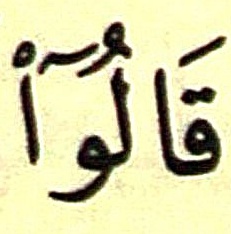 قَالُوٓا۟